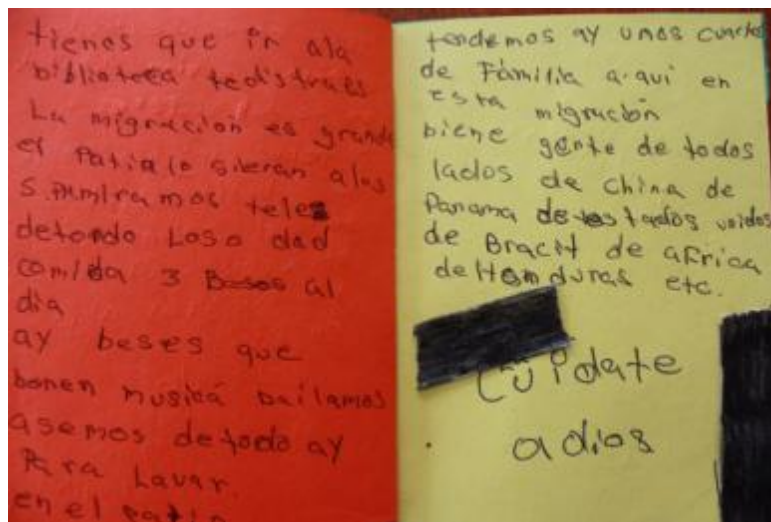 tienes que ir ala
biblioteca tedistraes
La migracion es grande
el Patio lo sieran alas
5. PM miramos teles
detondo Loso dad
comida 3 Beses al
dia
ay beses que
bonen musica bailamos
asemos detodo ay
Para Lavar
en el patio
tendemos ay unos cuartos
de Familia a.qui en
esta migracion
biene gente de todos
lados de China de
Panama de estados unidos
de Bracil de aFrica
de Honduras etc.
Cuidate
adios